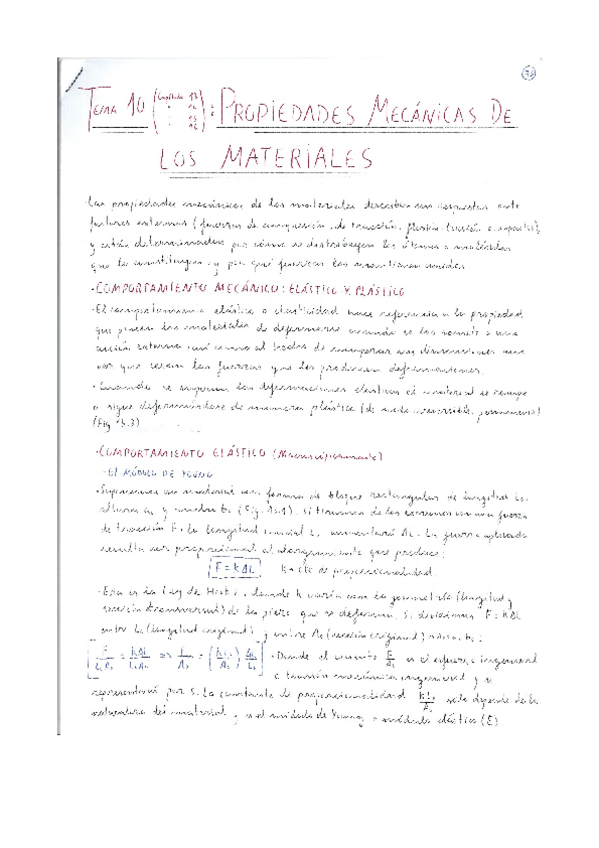 TEMA 10 (Capítulo : PROPIEDADES MECÁNICAS DE
LOS MATERIALES
Las propiedades mecánicas de los materiales describen sus respuestas ante
factores externos (fuerzas de compresión, de tracción, flexión, torsión o impacto),
y están determinadas por cómo se distribuyen los átomos o moléculas
que lo constituyen, y por qué fuerzas los mantienen unidos
·COMPORTAMIENTO MECÁNICO: ELÁSTICO Y PLÁSTICO
·El comportamiento elástico o elasticidad hace referencia a la propiedad
que poseen los materiales de deformarse cuando se les somete a una
acción externa así como al hecho de recuperar sus dimensiones una
vez que cesan las fuerzas que les producen deformaciones.
·Cuando se superan las deformaciones elásticas el material se rompe
o sigue deformándose de manera plástica (de modo irreversible, permanente)
(Fig
·COMPORTAMIENTO ELÁSTICO (Macroscópicamente)
·El MÓDULO DE YOUNG
·Suponemos un material con forma de bloque rectangular de longitud L₀
altura a₀ y ancho b₀ (Fig. Si tiramos de los extremos con una fuerza
de tracción F, la longitud inicial L₀ aumentará ΔL. La fuerza aplicada
resulta ser proporcional al alargamiento que produce:
F = kΔL k = cte de proporcionalidad
·Esta es la Ley de Hooke, donde k varía con la geometría (longitud y
sección transversal) de la pieza que se deforma. Si dividimos F = kΔL
entre L₀ (longitud original) y entre A₀ (sección original)
·Donde el cociente F/A₀ es el esfuerzo ingenieril
o tensión mecánica ingenieril y se
representará por s. La constante de proporcionalidad kL₀/A₀ solo depende de la
naturaleza del material y es el módulo de Young o módulo elástico (E)